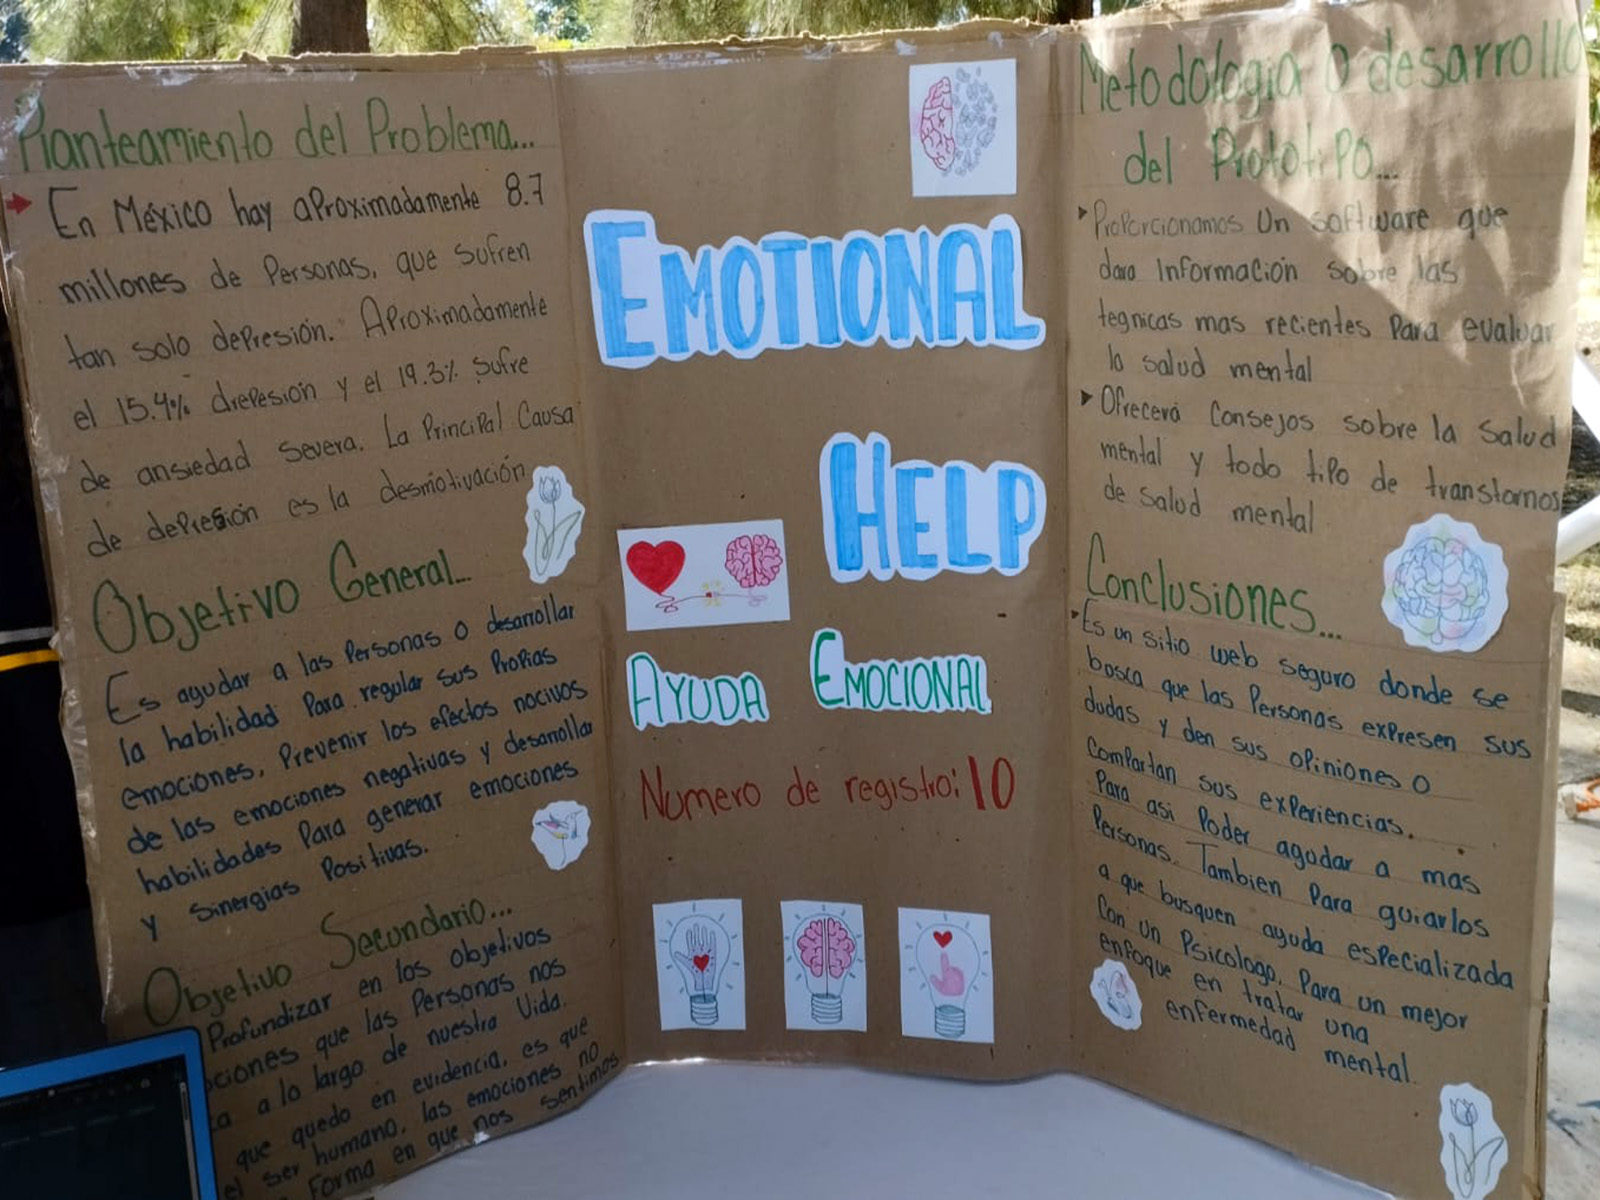 Planteamiento del Problema...
En México hay aproximadamente 8.7
millones de Personas, que sufren
tan solo depresión. Aproximadamente
el 15.4% drepesión y el 19.3% sufre
de ansiedad severa. La Principal Causa
de depresión es la desmotivación
Objetivo General...
Es ayudar a las Personas o desarrollar
la habilidad Para regular sus Propias
emociones, Prevenir los efectos nocivos
de las emociones negativas y desarrollar
habilidades Para generar emociones
y sinergias Positivas.
Objetivo Secundario...
Profundizar en los objetivos
que las Personas nos
a lo largo de nuestra Vida.
que quedo en evidencia, es que
el ser humano, las emociones no
Forma en que nos sentimos
EMOTIONAL
HELP
AYUDA EMOCIONAL
Numero de registro: 10
Metodologia o desarrollo
del Prototipo...
Proporcionamos Un software que
dara Información sobre las
tegnicas mas recientes Para evaluar
la salud mental
Ofrecerá Consejos sobre la Salud
mental y todo tipo de transtornos
de Salud mental
Conclusiones...
Es un sitio web seguro donde se
bosca que las Personas expresen sus
dudas y den sus opiniones o
Compartan sus experiencias.
Para asi Poder agudar a mas
Personas. Tambien Para guiarlos
a que busquen ayuda especializada
Con un Psicologo, Para un mejor
enfoque en tratar una
enfermedad mental.